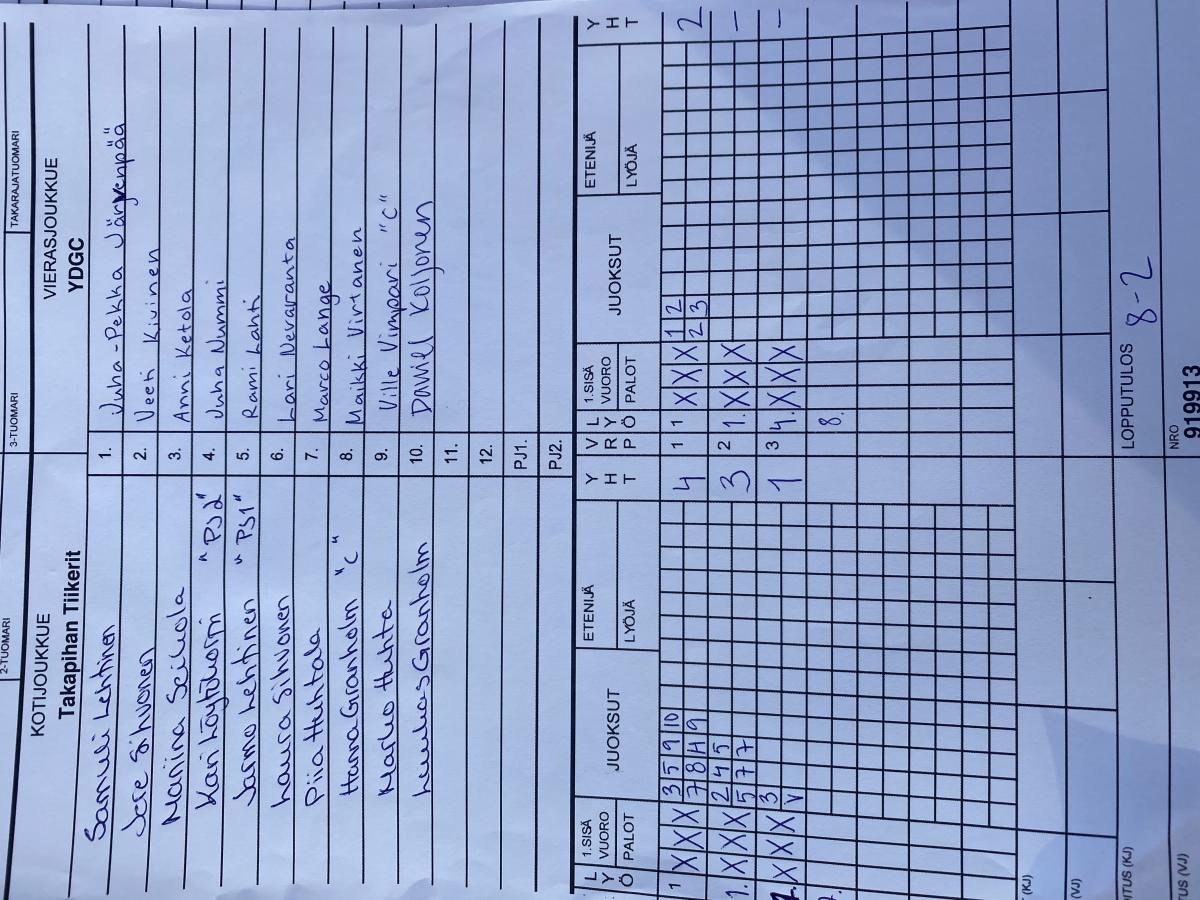 2-TUOMARI 3-TUOMARI TAKARAJATUOMARI
KOTIJOUKKUE VIERASJOUKKUE
Takapihan Tiikerit YDGC
Samuli Lehtinen 1. Juha-Pekka Järvenpää
Jere Sihvonen 2. Veeti Kivinen
Seikola 3. Anni Ketola
Kari "PJ2" 4. Juha Nummi
Jarmo Lehtinen "PJ1" 5. Rami Lahti
Laura Sihvonen 6. Lari Nevaranta
Piia Huhtala 7. Marco Lange
Hanna Granholm "C" 8. Maikki Virtanen
Marko Huhta 9. Ville Vimpari "C"
Granholm 10. Daniel Koljonen
11.
12.
PJ1.
PJ2.
L Y Ö 1.SISÄ VUORO PALOT JUOKSUT ETENIJÄ LYÖJÄ Y H T V R P L Y Ö 1.SISÄ VUORO PALOT JUOKSUT ETENIJÄ LYÖJÄ Y H T
1 X X X 3 5 9 10 4 1 1 X X X 1 2 2
7 8 H 9 2 3
1. X X X 2 4 5 3 2 1. X X X –
5 7 7
7. X X X 3 1 3 4. X X X –
V
7. 8.
(KJ)
(VJ)
LOPPUTULOS 8-2
ITUS (KJ)
NRO
TUS (VJ) 919913